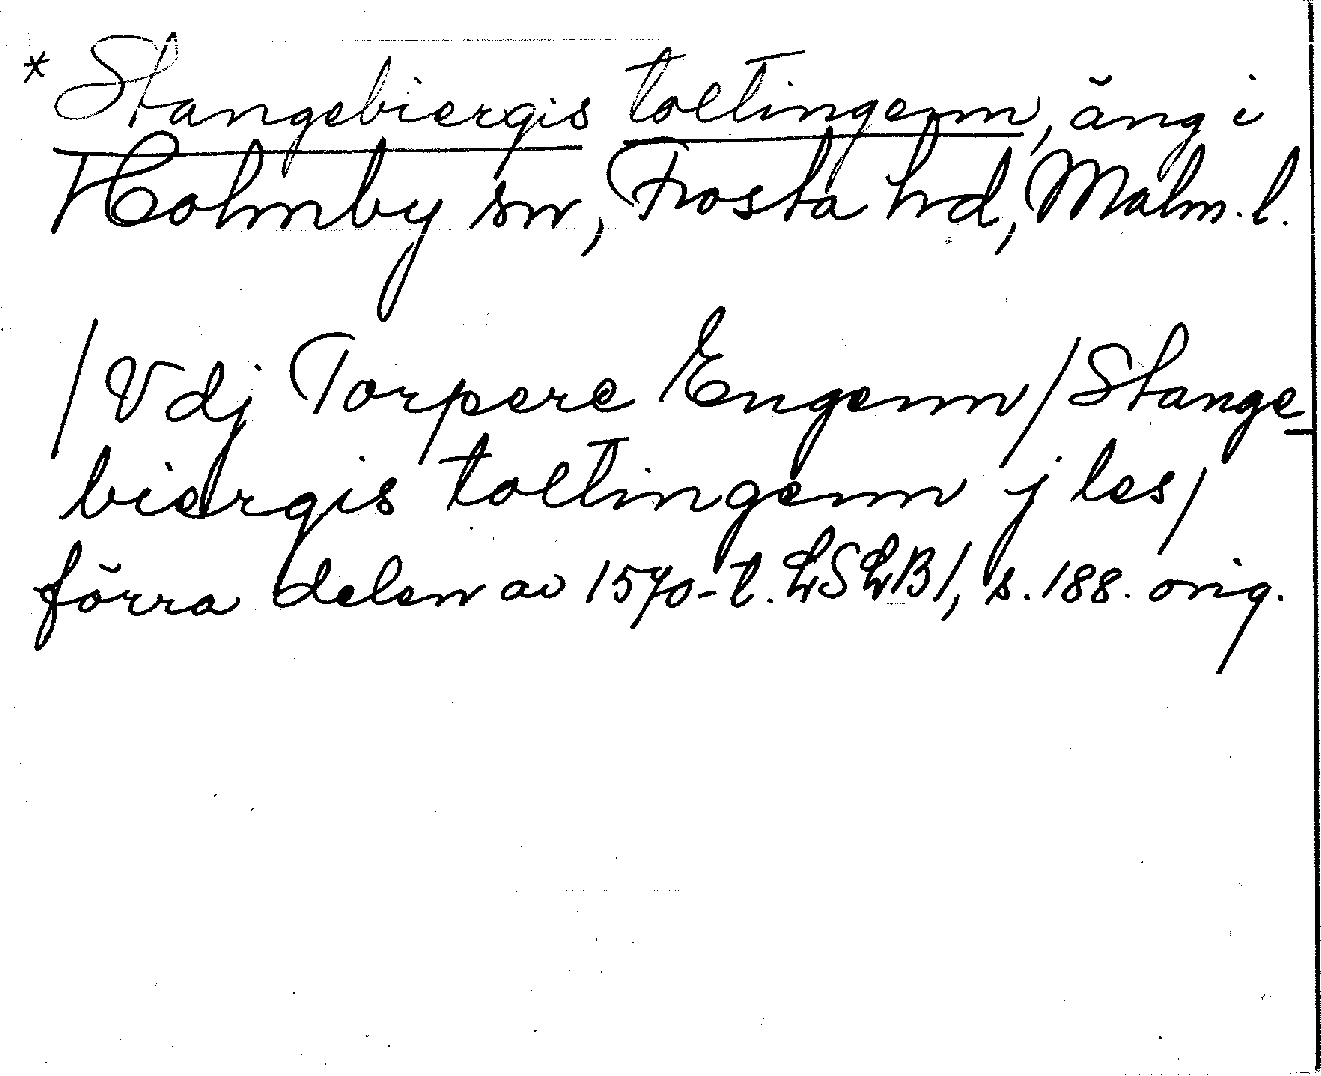 * Stangebiergis toltingenn, äng i
Holmby sn, Frosta hd, Malm. l.
/Vdj Torpere Engenn/Stange-
biergis toltingenn j les/
förra delen av 1570-t. LSLB/, s. 188. orig.